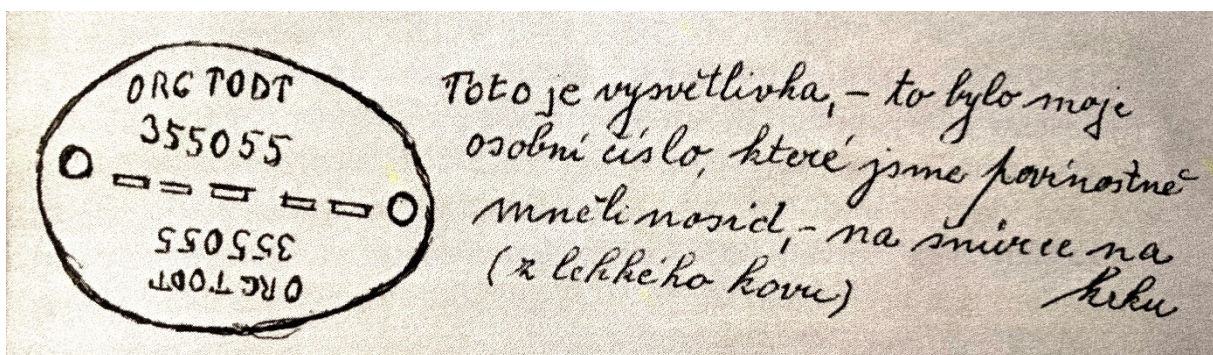 ORG TODT
355055
355055
ORG TODT
Toto je vysvětlivka, – to bylo moje
osobní číslo, které jsme povinostně
mněli nosid, – na šňůrce na
krku
(z lehkého kovu)